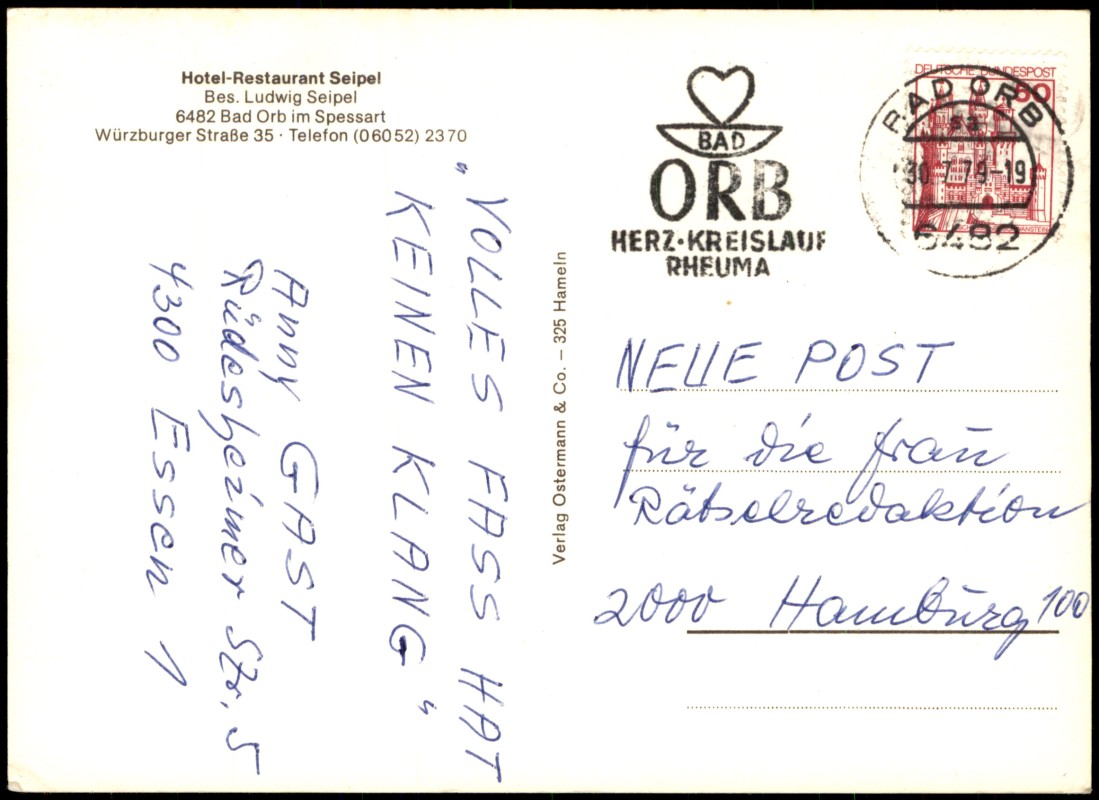 Hotel-Restaurant Seipel
Bes. Ludwig Seipel
6482 Bad Orb im Spessart
Würzburger Straße 35 · Telefon (0 60 52) 23 70
„VOLLES FASS HAT
KEINEN KLANG“
Anny GAST
Rüdesheimer Str. 5
4300 Essen 1
Verlag Ostermann & Co. – 325 Hameln
BAD
ORB
HERZ·KREISLAUF
RHEUMA
DEUTSCHE BUNDESPOST
60
BAD ORB
30.7.79-19
6482
NEUE POST
für die frau
Rätselredaktion
2000 Hamburg 100